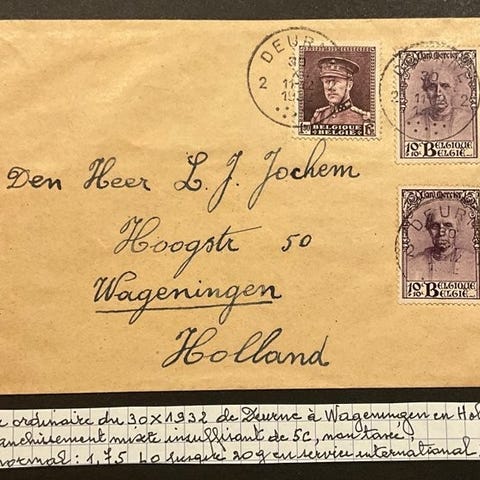 DEURNE
30
X
11-12
1932
2
BELGIQUE
BELGIË
Card. Mercier
10c BELGIQUE
+10c BELGIË
Card. Mercier
10c BELGIQUE
+10c BELGIË
Den Heer L. J. Jochem
Hoogstr 50
Wageningen
Holland
ordinaire du 30 X 1932 de Deurne à Wageningen en Hol
anchissement mixte insuffisant de 5c, non taxé,
normal : 1,75 Lo jusque 20g en service international